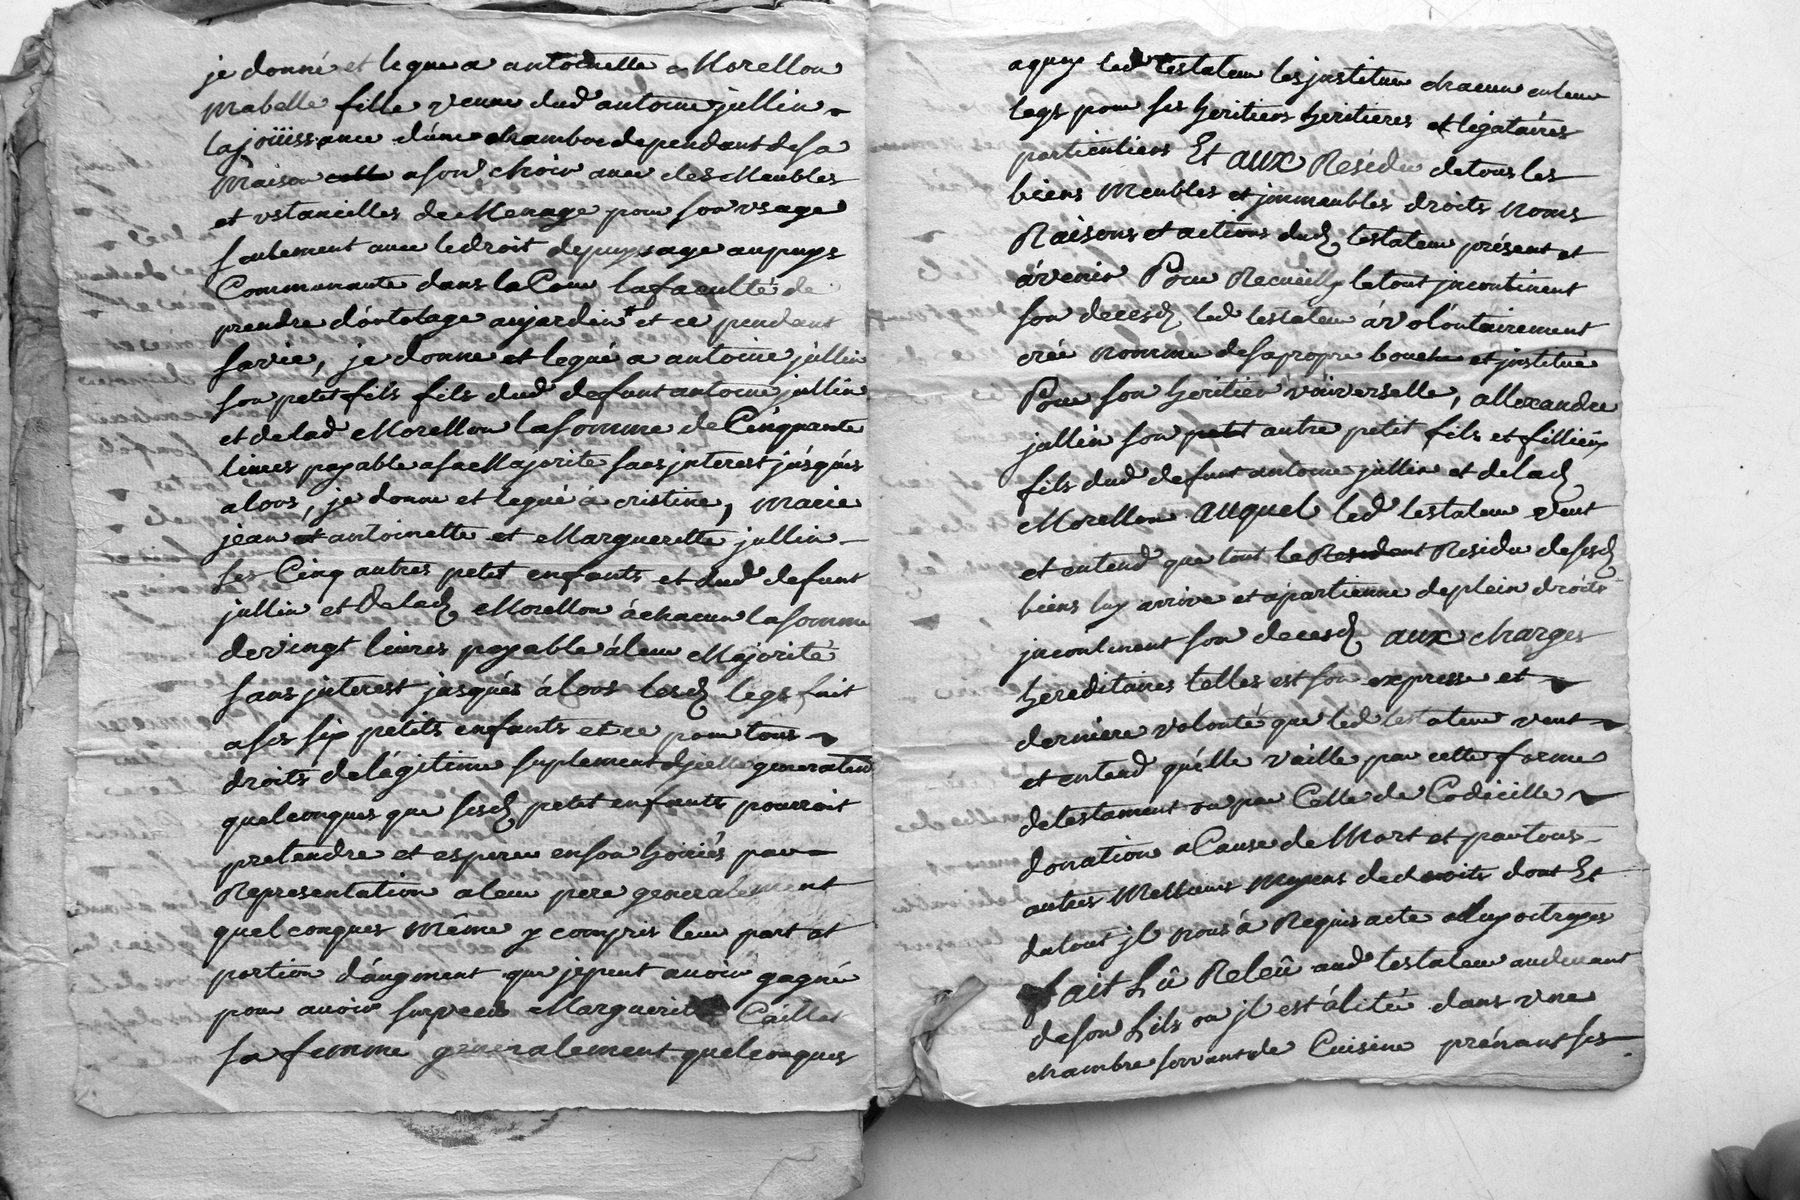 je donné et legue a antoinette Morellon
mabelle fille veuve dud antoine jullin
la joüissance dúne chambre dependant de sa
maison a son choix avec des Meubles
et ustancilles de Menage pour son usage
seulement avec le droit de puysage au puys
Commun dans la Cour la faculté de
prendre d'ortolage au jardin et ce pendant
sa vie, je donne et legué a antoine jullin
son petit fils fils dud defunt antoine jullin
et de lad Morellon la somme de Cinquante
livres payable a sa Majorité sans jnterest jusqués
alors, je donne et legué á cristine, marie
jean et antoinette et Marguerite jullin
ses Cinq autres petit enfants et dud defunt
jullin et de lad Morellon á chacun la somme
de vingt livres payable á leur Majorité
sans jnterest jusqués á Lors lesd legs fait
a ses six petits enfants et ce pour tous
droits de légitime suplement djcelle generalem
quelconques que sesd petit enfants pourroit
pretendre et esperer en son hoiriés par
Representation a leur pere generalement
quelconques même y compris leur part et
portion d'áugment que je peut avoir gagné
pour avoir survecu Marguerite Caillet
sa femme generalement quelconques
aquoy led testateur les jnstitue chacun en leur
legs pour ses heritiers heritieres et légatáires
particuliers Et aux Residu de tous les
biens meubles et jmmeubles droits noms
Raisons et actions dud testateur présent et
ávenir Pour Recueilly le tout jncontinent
son decesd led testateur á volóntairement
créé nommé de sa propre bouche et jnstitué
Pour son heritier úniverselle, allexandre
jullin son petit autre petit fils et fillieux
fils dud defunt antoine jullin et de lad
Morellon auquel led testateur veut
et entend que tout le Residu de sesd
biens luy arrive et apartienne de plein droits
jncontinent son decesd aux charges
hereditaires telles est son expresse et
derniere volonté que led testateur veut
et entend qu'élle vaille par cette forme
de testament ou par Celle de Codicille
donation a Cause de Mort et par tous
autres Meilleurs moyens de droits dont Et
du tout jl nous á Requis acte a luy octroyés
fait Lû Releû aud testateur au devant
de son Lils ou jl est álité dans une
chambre servant de Cuisine prénant ses